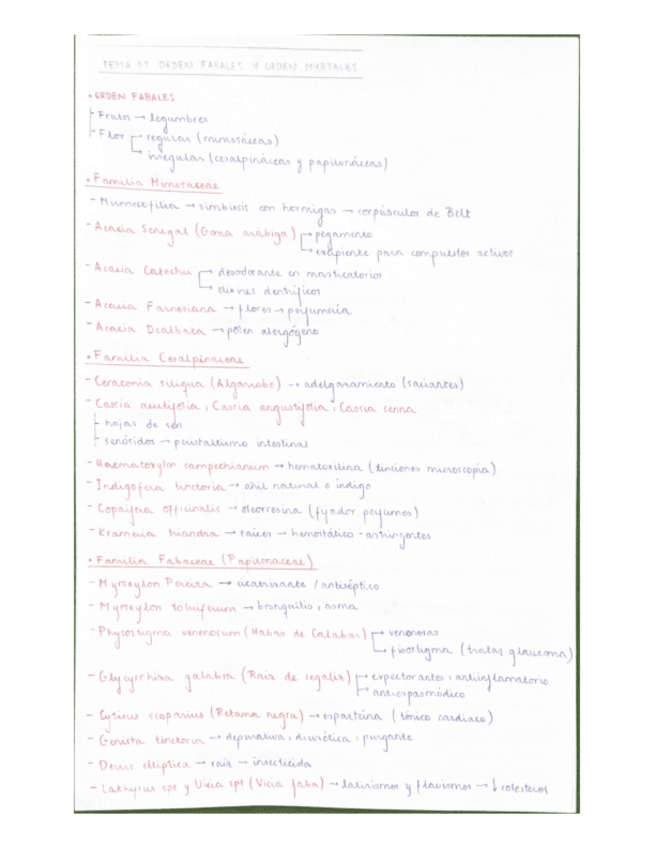 TEMA 11: ORDEN FABALES Y ORDEN MYRTALES
• ORDEN FABALES
- Frutos → legumbres
- Flor → regular (mimosáceas)
→ irregular (cesalpináceas y papilonáceas)
• Familia Mimosaceae
- Mirmecofilia → simbiosis con hormigas → corpúsculos de Belt
- Acacia Senegal (Goma arábiga) → pegamento
→ excipiente para compuestos activos
- Acacia Catechu → desodorante en masticatorios
→ elixires dentríficos
- Acacia Farnesiana → flores → perfumería
- Acacia Dealbata → pólen alergógeno
• Familia Cesalpinaceae
- Ceratonia siliqua (Algarrobo) → adelgazamiento (saciantes)
- Cassia acutifolia, Cassia angustifolia, Cassia senna
- hojas de sen
- senósidos → peristaltismo intestinal
- Haematoxylon campechianum → hematoxilina (tinciones microscopia)
- Indigofera tinctoria → añil natural o índigo
- Copaifera officinalis → oleorresina (fijador perfumes)
- Krameria triandra → raíces → hemostático - astringentes
• Familia Fabaceae (Papilonaceae)
- Myroxylon Pereira → cicatrizante / antiséptico
- Myroxylon toluiferum → bronquitis, asma
- Physostigma venenosum (Habas de Calabar) → venenosas
→ fisostigma (tratar glaucoma)
- Glycyrrhiza galabra (Raíz de regaliz) → expectorantes, antiinflamatorio
→ antiespasmódico
- Cytisus scoparius (Retama negra) → esparteína (tónico cardiaco)
- Genista tinctoria → depurativa, diurética, purgante
- Derris elliptica → raíz → insecticida
- Lathyrus sps y Vicia sps (Vicia faba) → latirismos y flavismos → ↓ colesterol